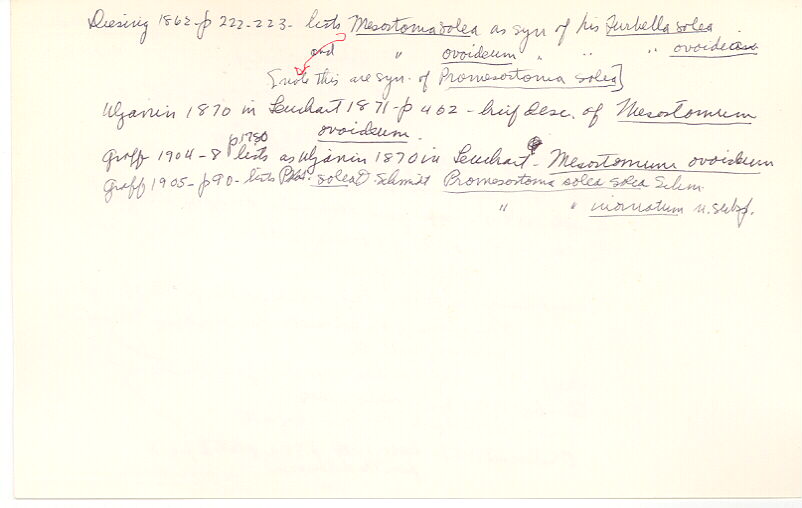 Diesing 1862-p 222-223- lists Mesostoma solea as syn of his Turbella solea
and " ovoideum " " " ovoidea
[note this are syn. of Promesostoma solea]
Uljanin 1870 in Leuckart 1871-p 462 - brief desc. of Mesostomum
ovoideum.
Graff 1904-8 p 1780 lists as Uljanin 1870 in Leuckart - Mesostomum ovoideum
Graff 1905-p 90- lists solea O. Schmidt Promesostoma solea solea Schm.
" " inornatum n. subsp.